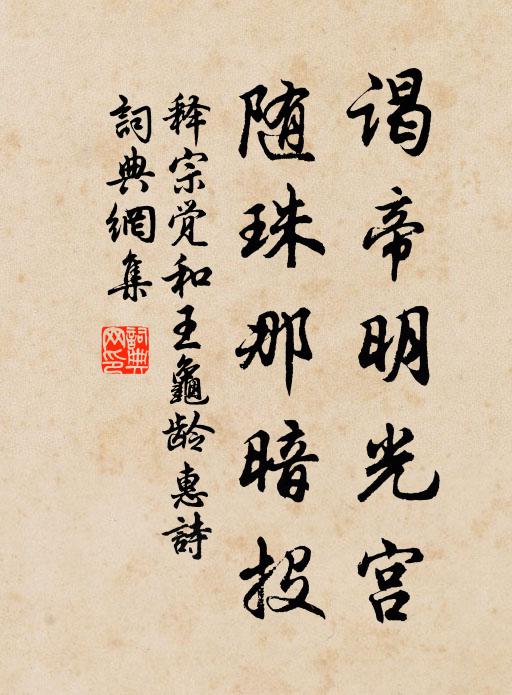 谒帝明光宫
随珠那暗投
释宗觉和王龜龄惠詩
詞典網集
詞典网印